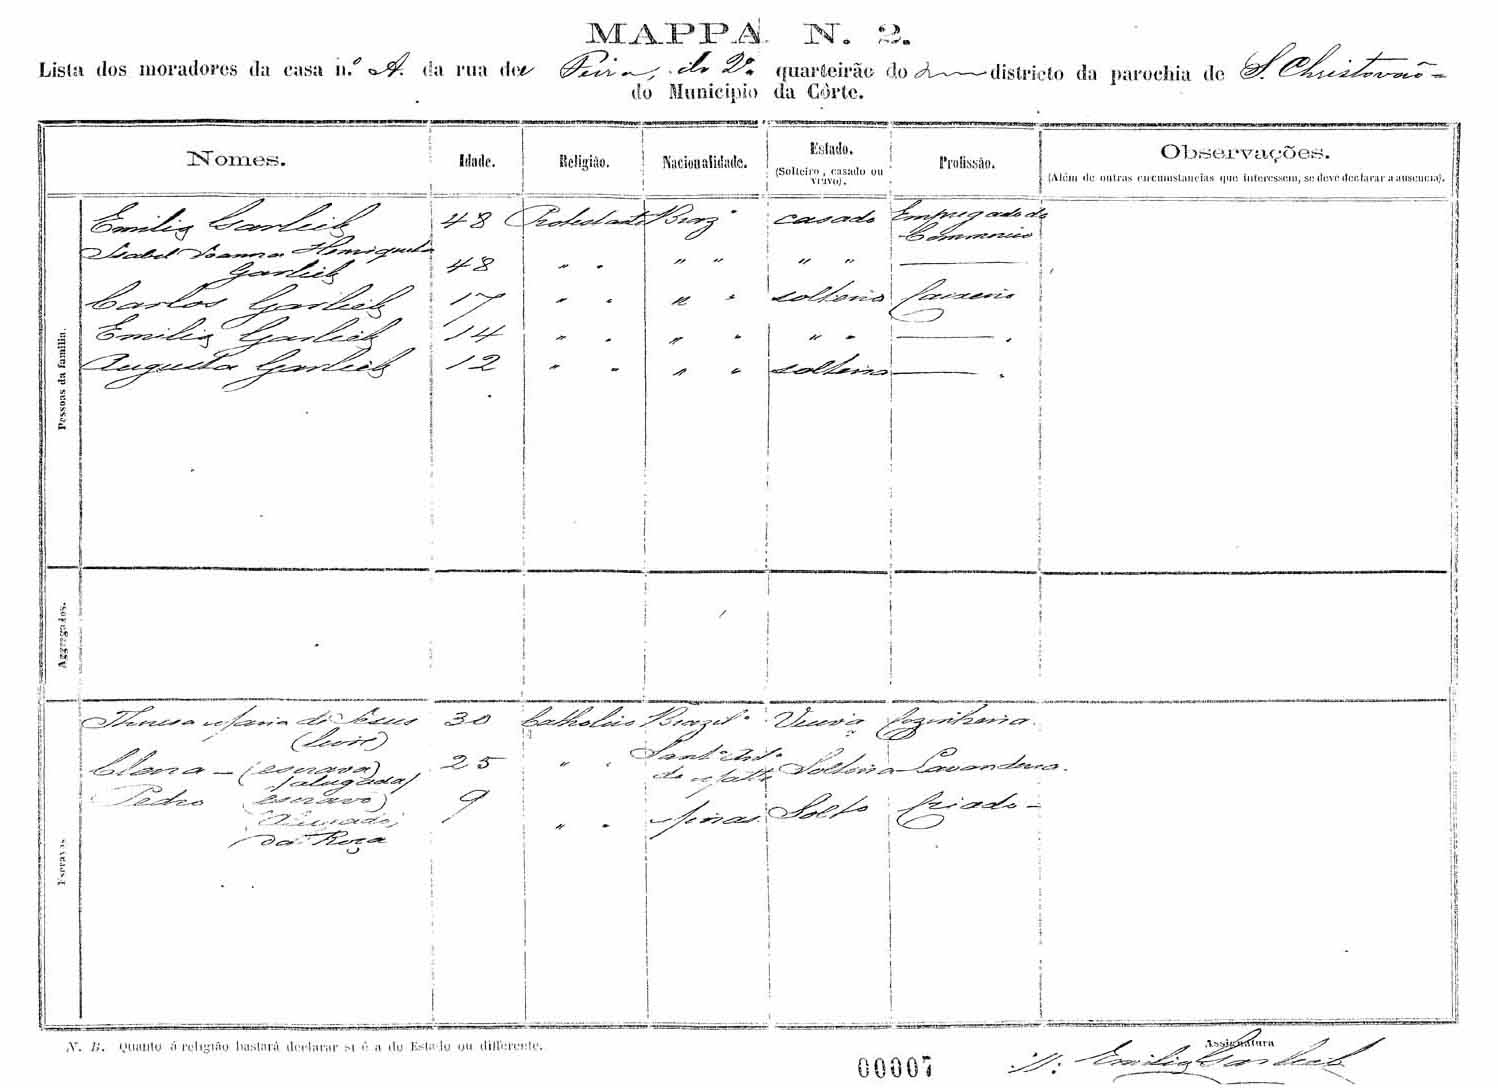 MAPPA N. 2.
Lista dos moradores da casa n.º A. da rua de Feira, do 2º quarteirão do districto da parochia de S. Christovão
do Municipio da Côrte.
Nomes. Idade. Religião. Nacionalidade. Estado. Profissão. Observações.
(Solteiro, casado ou viuvo). (Além de outras circumstancias que interessem, se deve declarar a ausencia).
Pessoas da familia.
Emilio Garlieb 48 Protestante Braz.º casado Empregado do
Commercio
Isabel Joanna Henriqueta
Garlieb 48 " " " " " " ——
Carlos Garlieb 17 " " " " solteiro Caixeiro
Emilio Garlieb 14 " " " " " " ——
Augusta Garlieb 12 " " " " solteira ——
Aggregados.
Escravos
Thereza Maria de Jesus 30 Catholica Brazil.ª Viuva Cozinheira.
(livre)
Clara - (escrava) 25 " " Solteira - Lavandeira.
/alugada/
Pedro (escravo) 9 " " Minas Solto Criado -
da Roça
N. B. Quanto á religião bastará declarar si é a do Estado ou differente.
Assignatura
00007 Emilio Garlieb